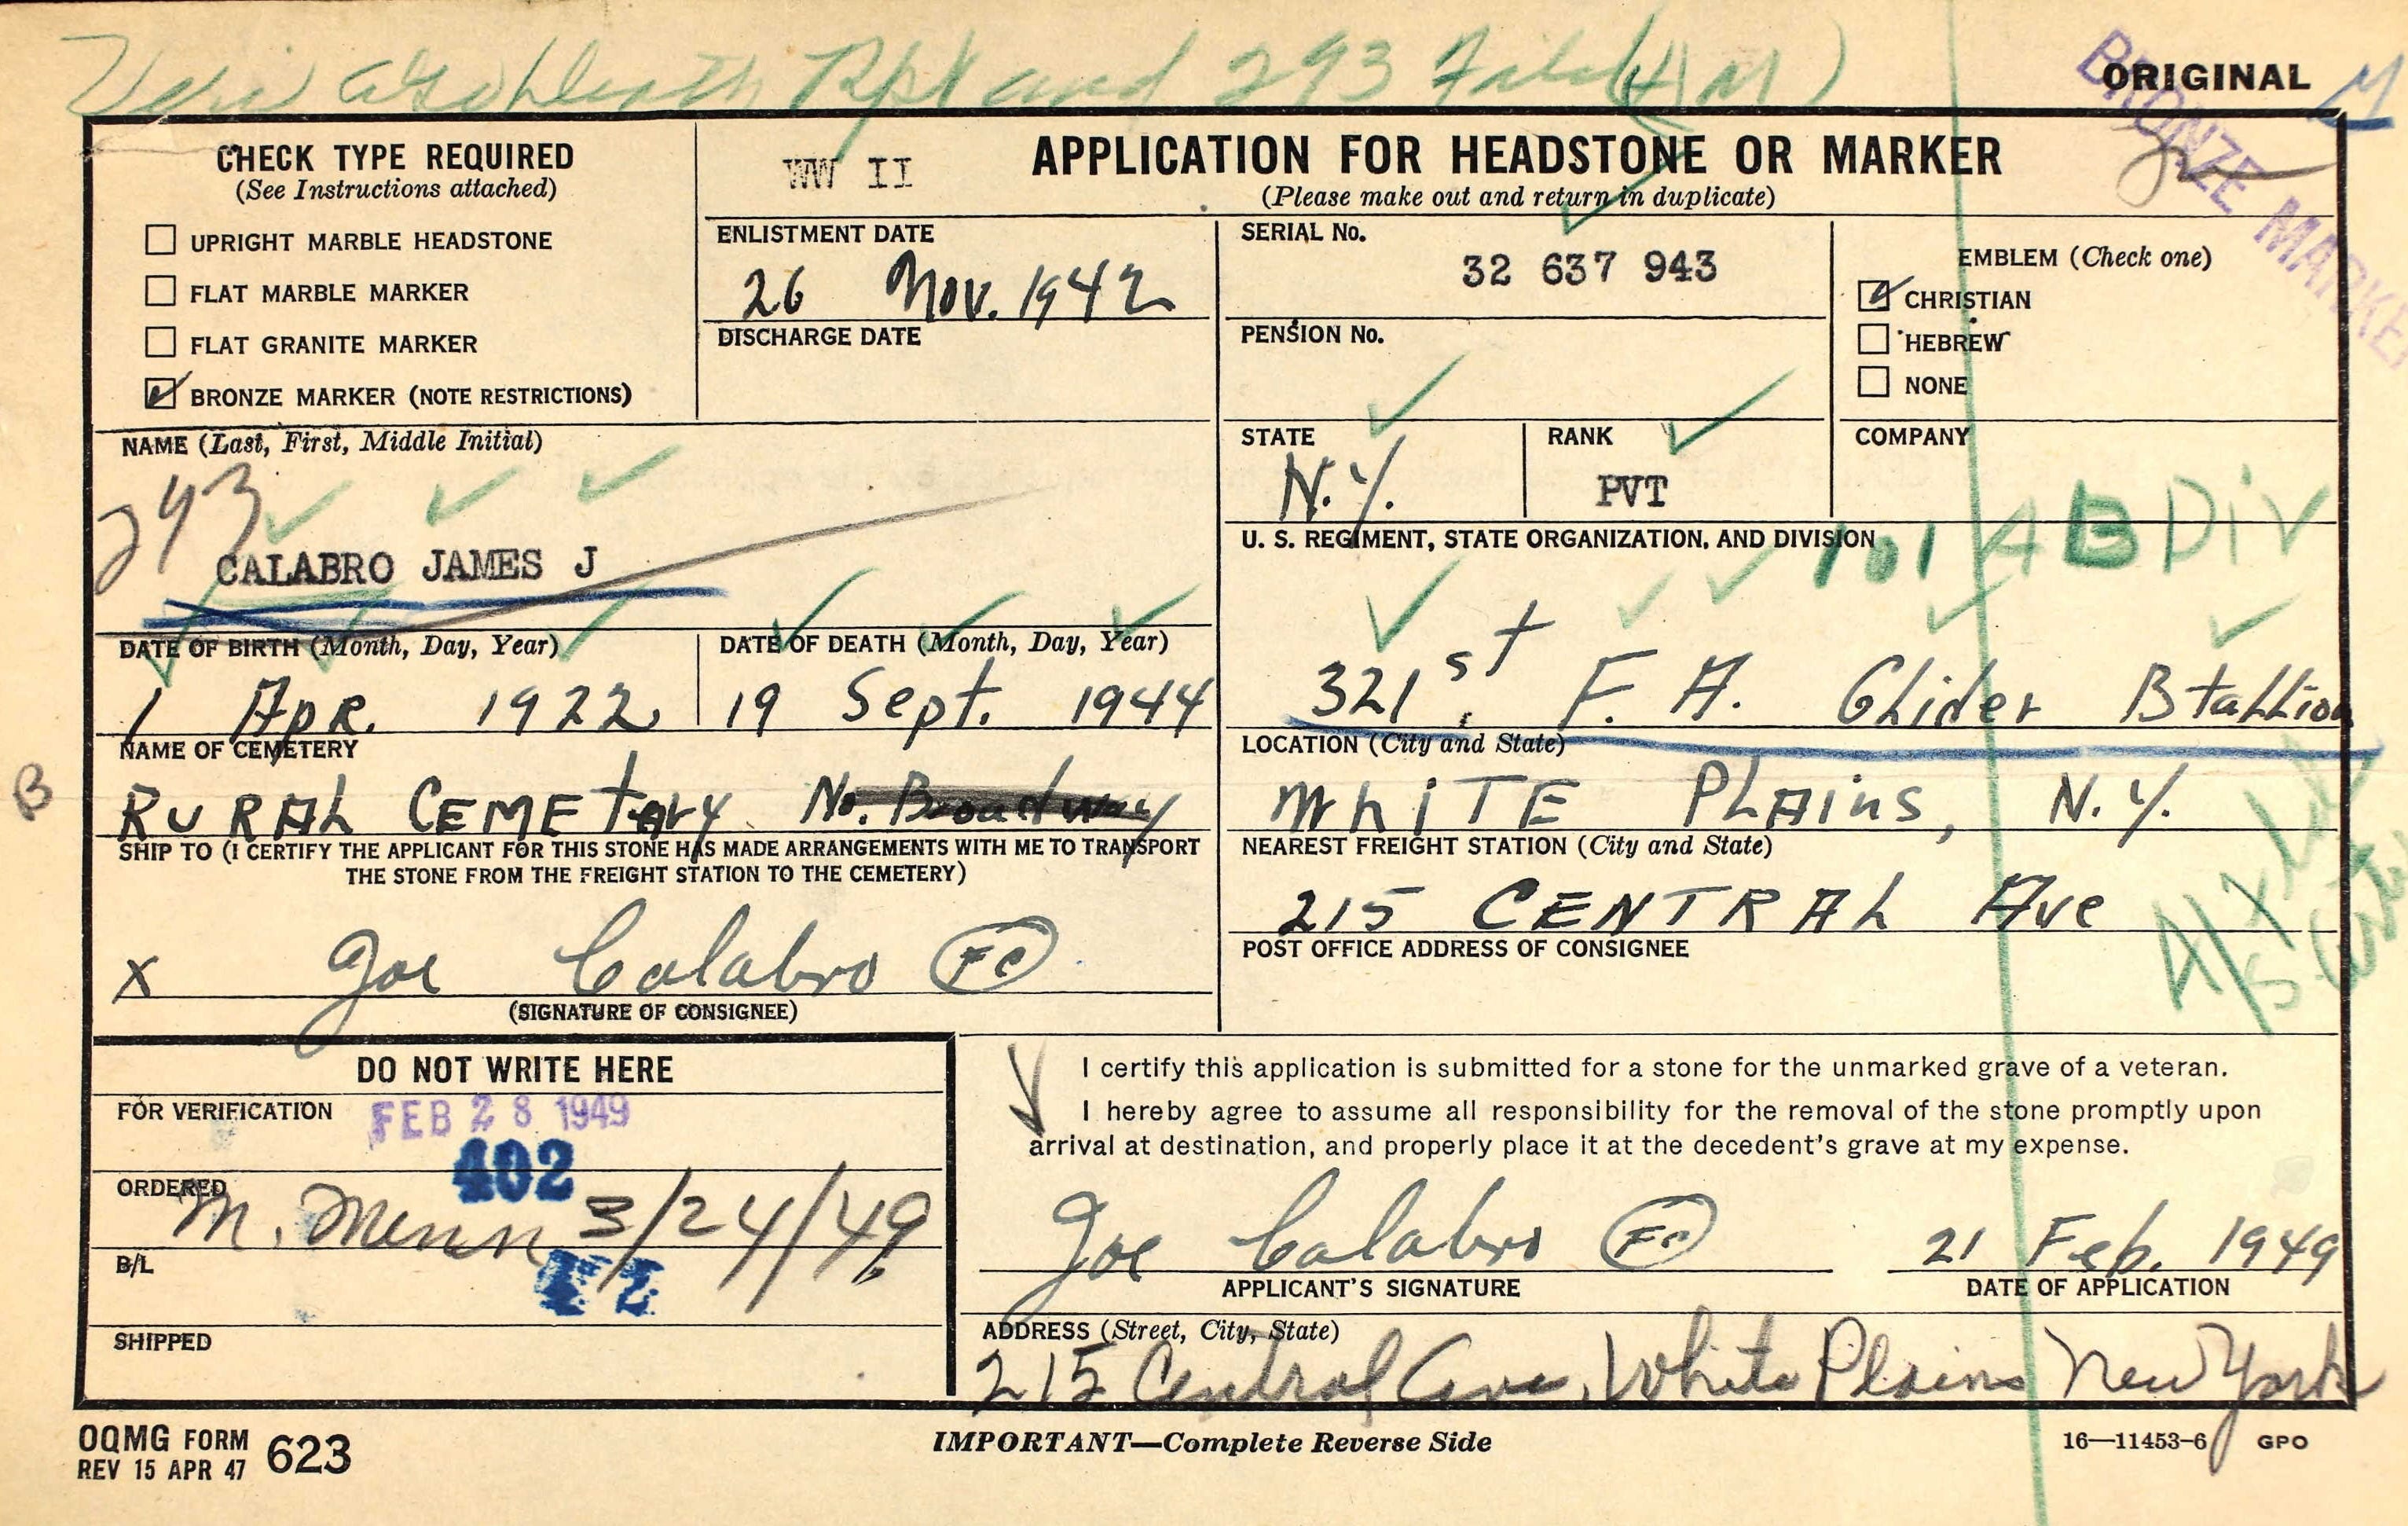 Rpt and 293 File (AM)
ORIGINAL M
BRONZE MARKER
CHECK TYPE REQUIRED
(See Instructions attached)
UPRIGHT MARBLE HEADSTONE
FLAT MARBLE MARKER
FLAT GRANITE MARKER
BRONZE MARKER (NOTE RESTRICTIONS)
WW II
APPLICATION FOR HEADSTONE OR MARKER
(Please make out and return in duplicate)
ENLISTMENT DATE
26 Nov. 1942
DISCHARGE DATE
SERIAL No.
32 637 943
PENSION No.
EMBLEM (Check one)
CHRISTIAN
HEBREW
NONE
NAME (Last, First, Middle Initial)
293
CALABRO JAMES J
STATE
N.Y.
RANK
PVT
COMPANY
U. S. REGIMENT, STATE ORGANIZATION, AND DIVISION
101 AB DiV
321st F. A. Glider Btallion
DATE OF BIRTH (Month, Day, Year)
1 Apr. 1922
DATE OF DEATH (Month, Day, Year)
19 Sept. 1944
NAME OF CEMETERY
B
RURAL CEMETary No. Broadway
LOCATION (City and State)
WhiTE PLAins, N.Y.
SHIP TO (I CERTIFY THE APPLICANT FOR THIS STONE HAS MADE ARRANGEMENTS WITH ME TO TRANSPORT
THE STONE FROM THE FREIGHT STATION TO THE CEMETERY)
X Joe Calabro FC
(SIGNATURE OF CONSIGNEE)
NEAREST FREIGHT STATION (City and State)
215 CENTRAL Ave
POST OFFICE ADDRESS OF CONSIGNEE
DO NOT WRITE HERE
FOR VERIFICATION FEB 28 1949
402
ORDERED
3/24/49
B/L
SHIPPED
I certify this application is submitted for a stone for the unmarked grave of a veteran.
I hereby agree to assume all responsibility for the removal of the stone promptly upon
arrival at destination, and properly place it at the decedent's grave at my expense.
Joe Calabro FC
APPLICANT'S SIGNATURE
21 Feb. 1949
DATE OF APPLICATION
ADDRESS (Street, City, State)
215 Central Ave, White Plains New York
OQMG FORM 623
REV 15 APR 47
IMPORTANT—Complete Reverse Side
16—11453-6 GPO